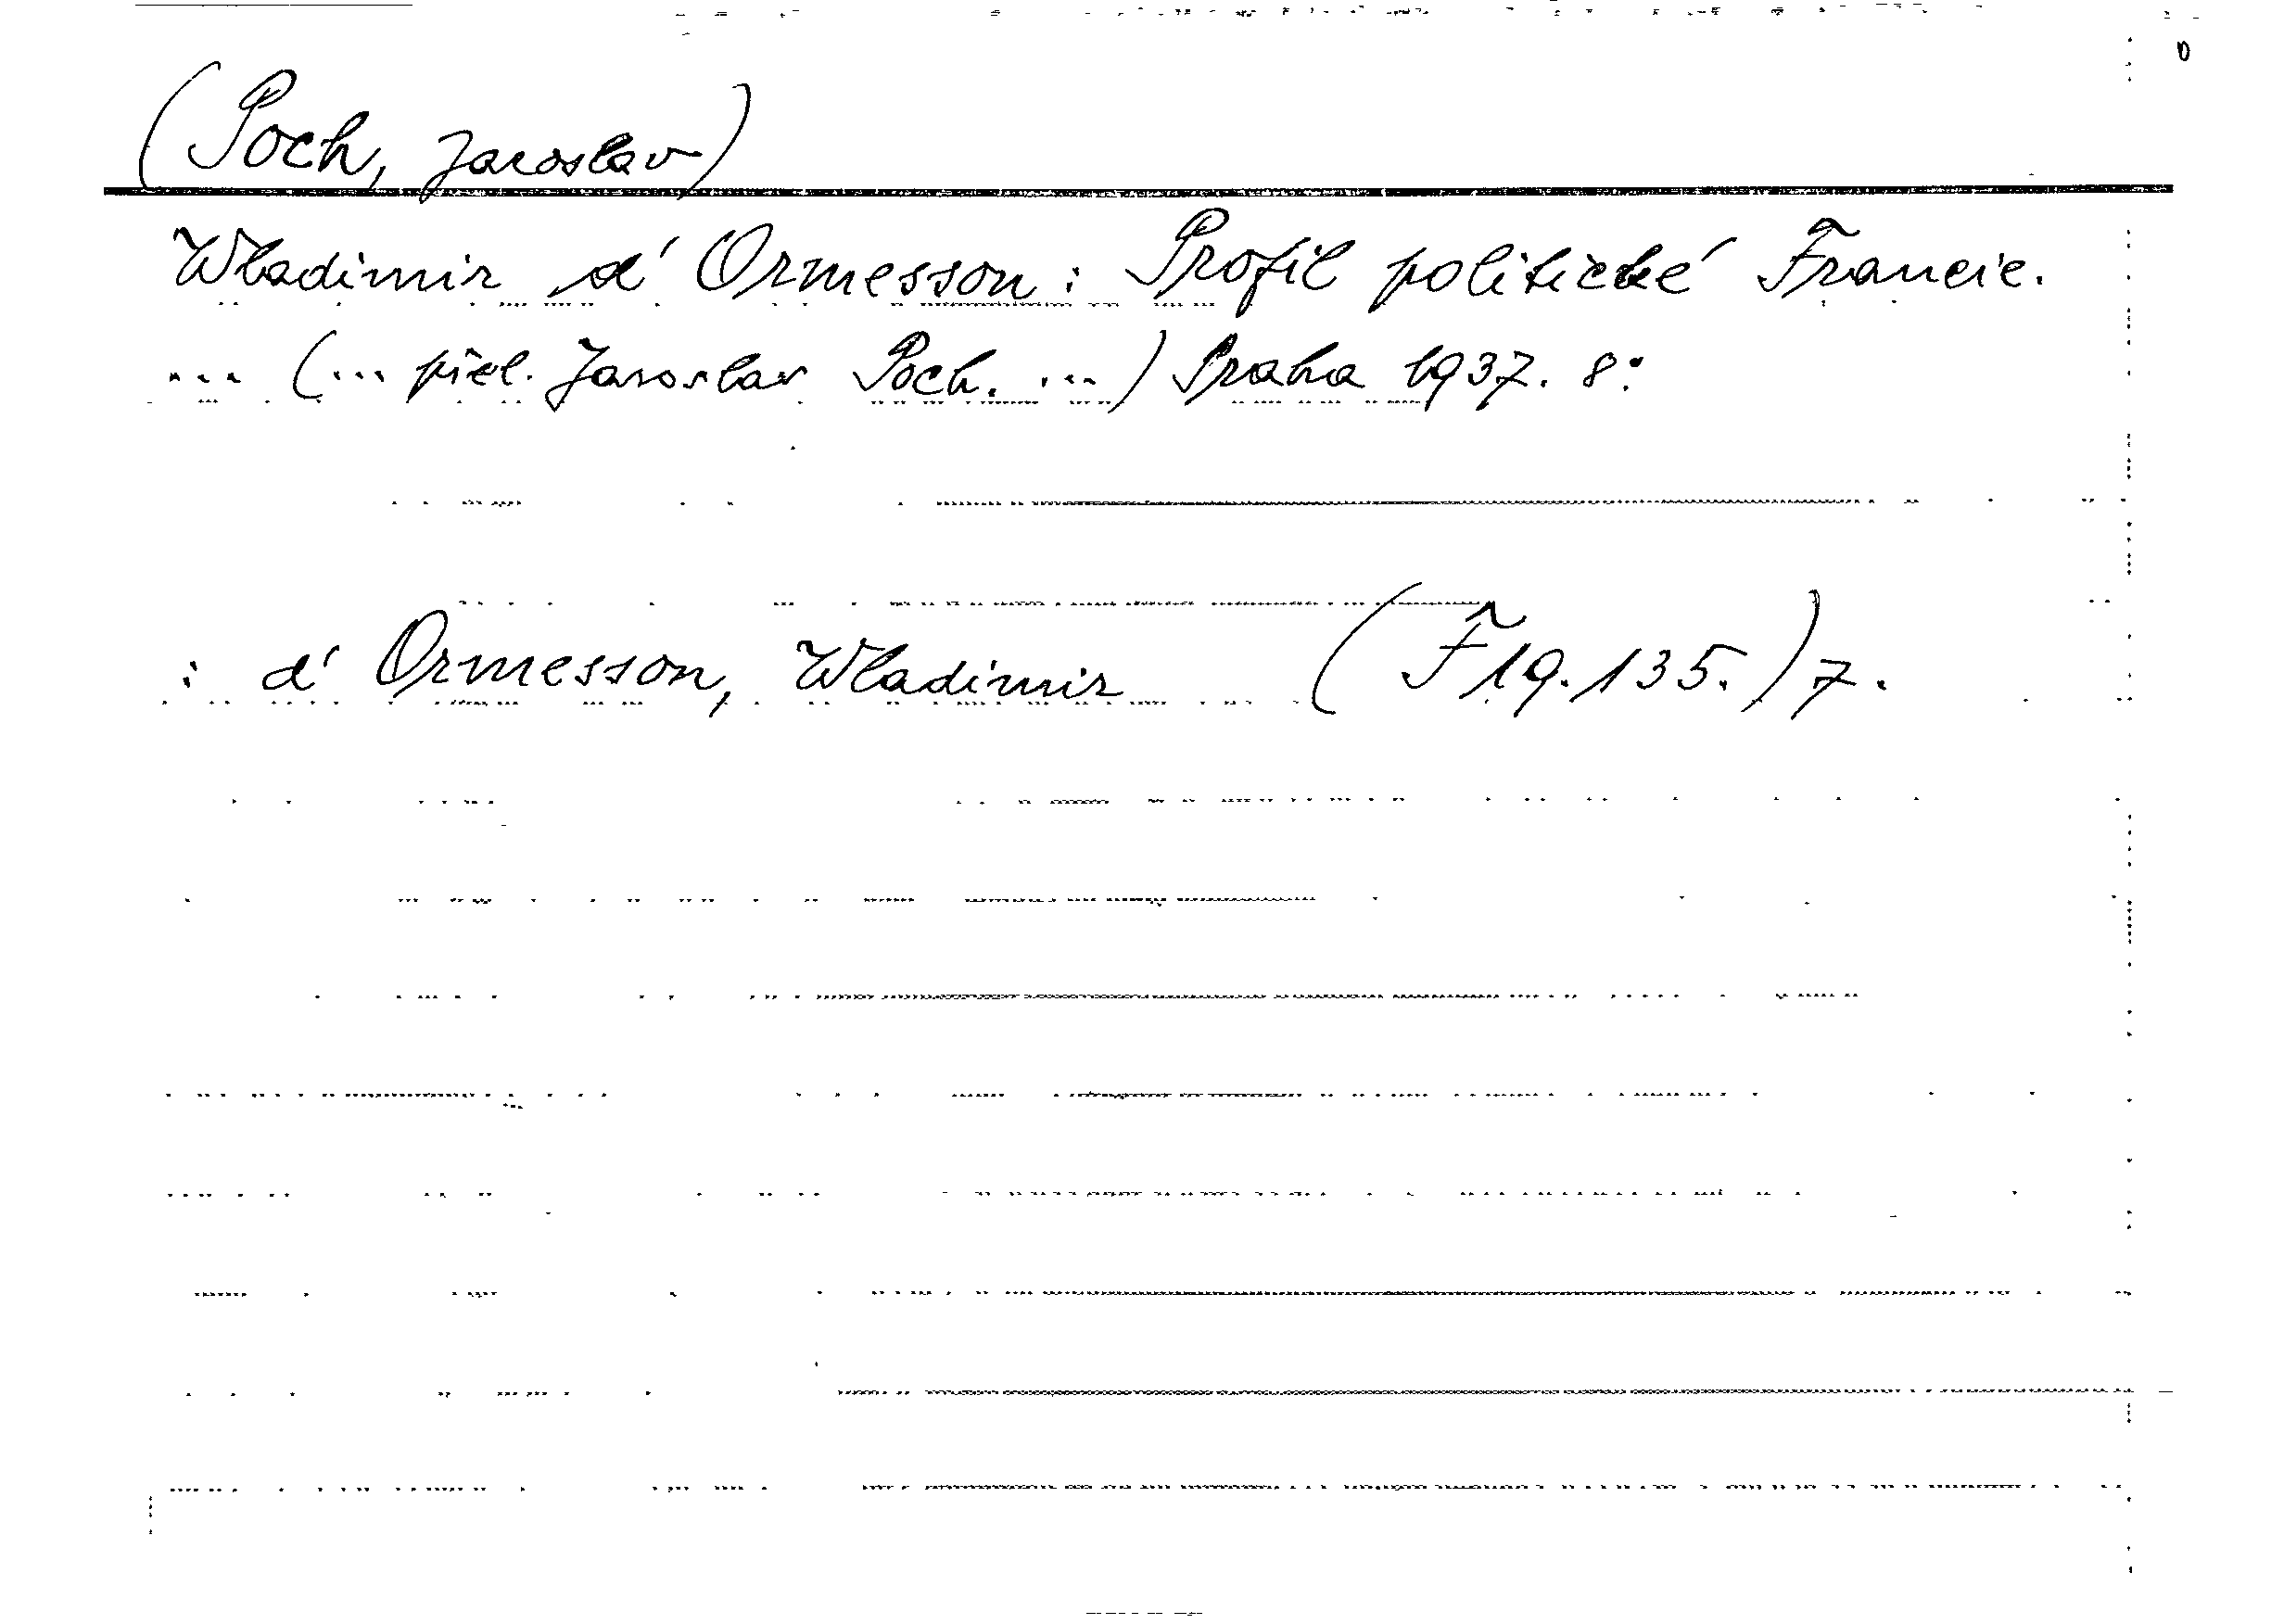 (Poch, Jaroslav)
Wladimir d' Ormesson: Profil politické Francie.
... (... přel. Jaroslav Poch. ...) Praha 1937. 8°
: d' Ormesson, Wladimir (F 19.135.) 7.